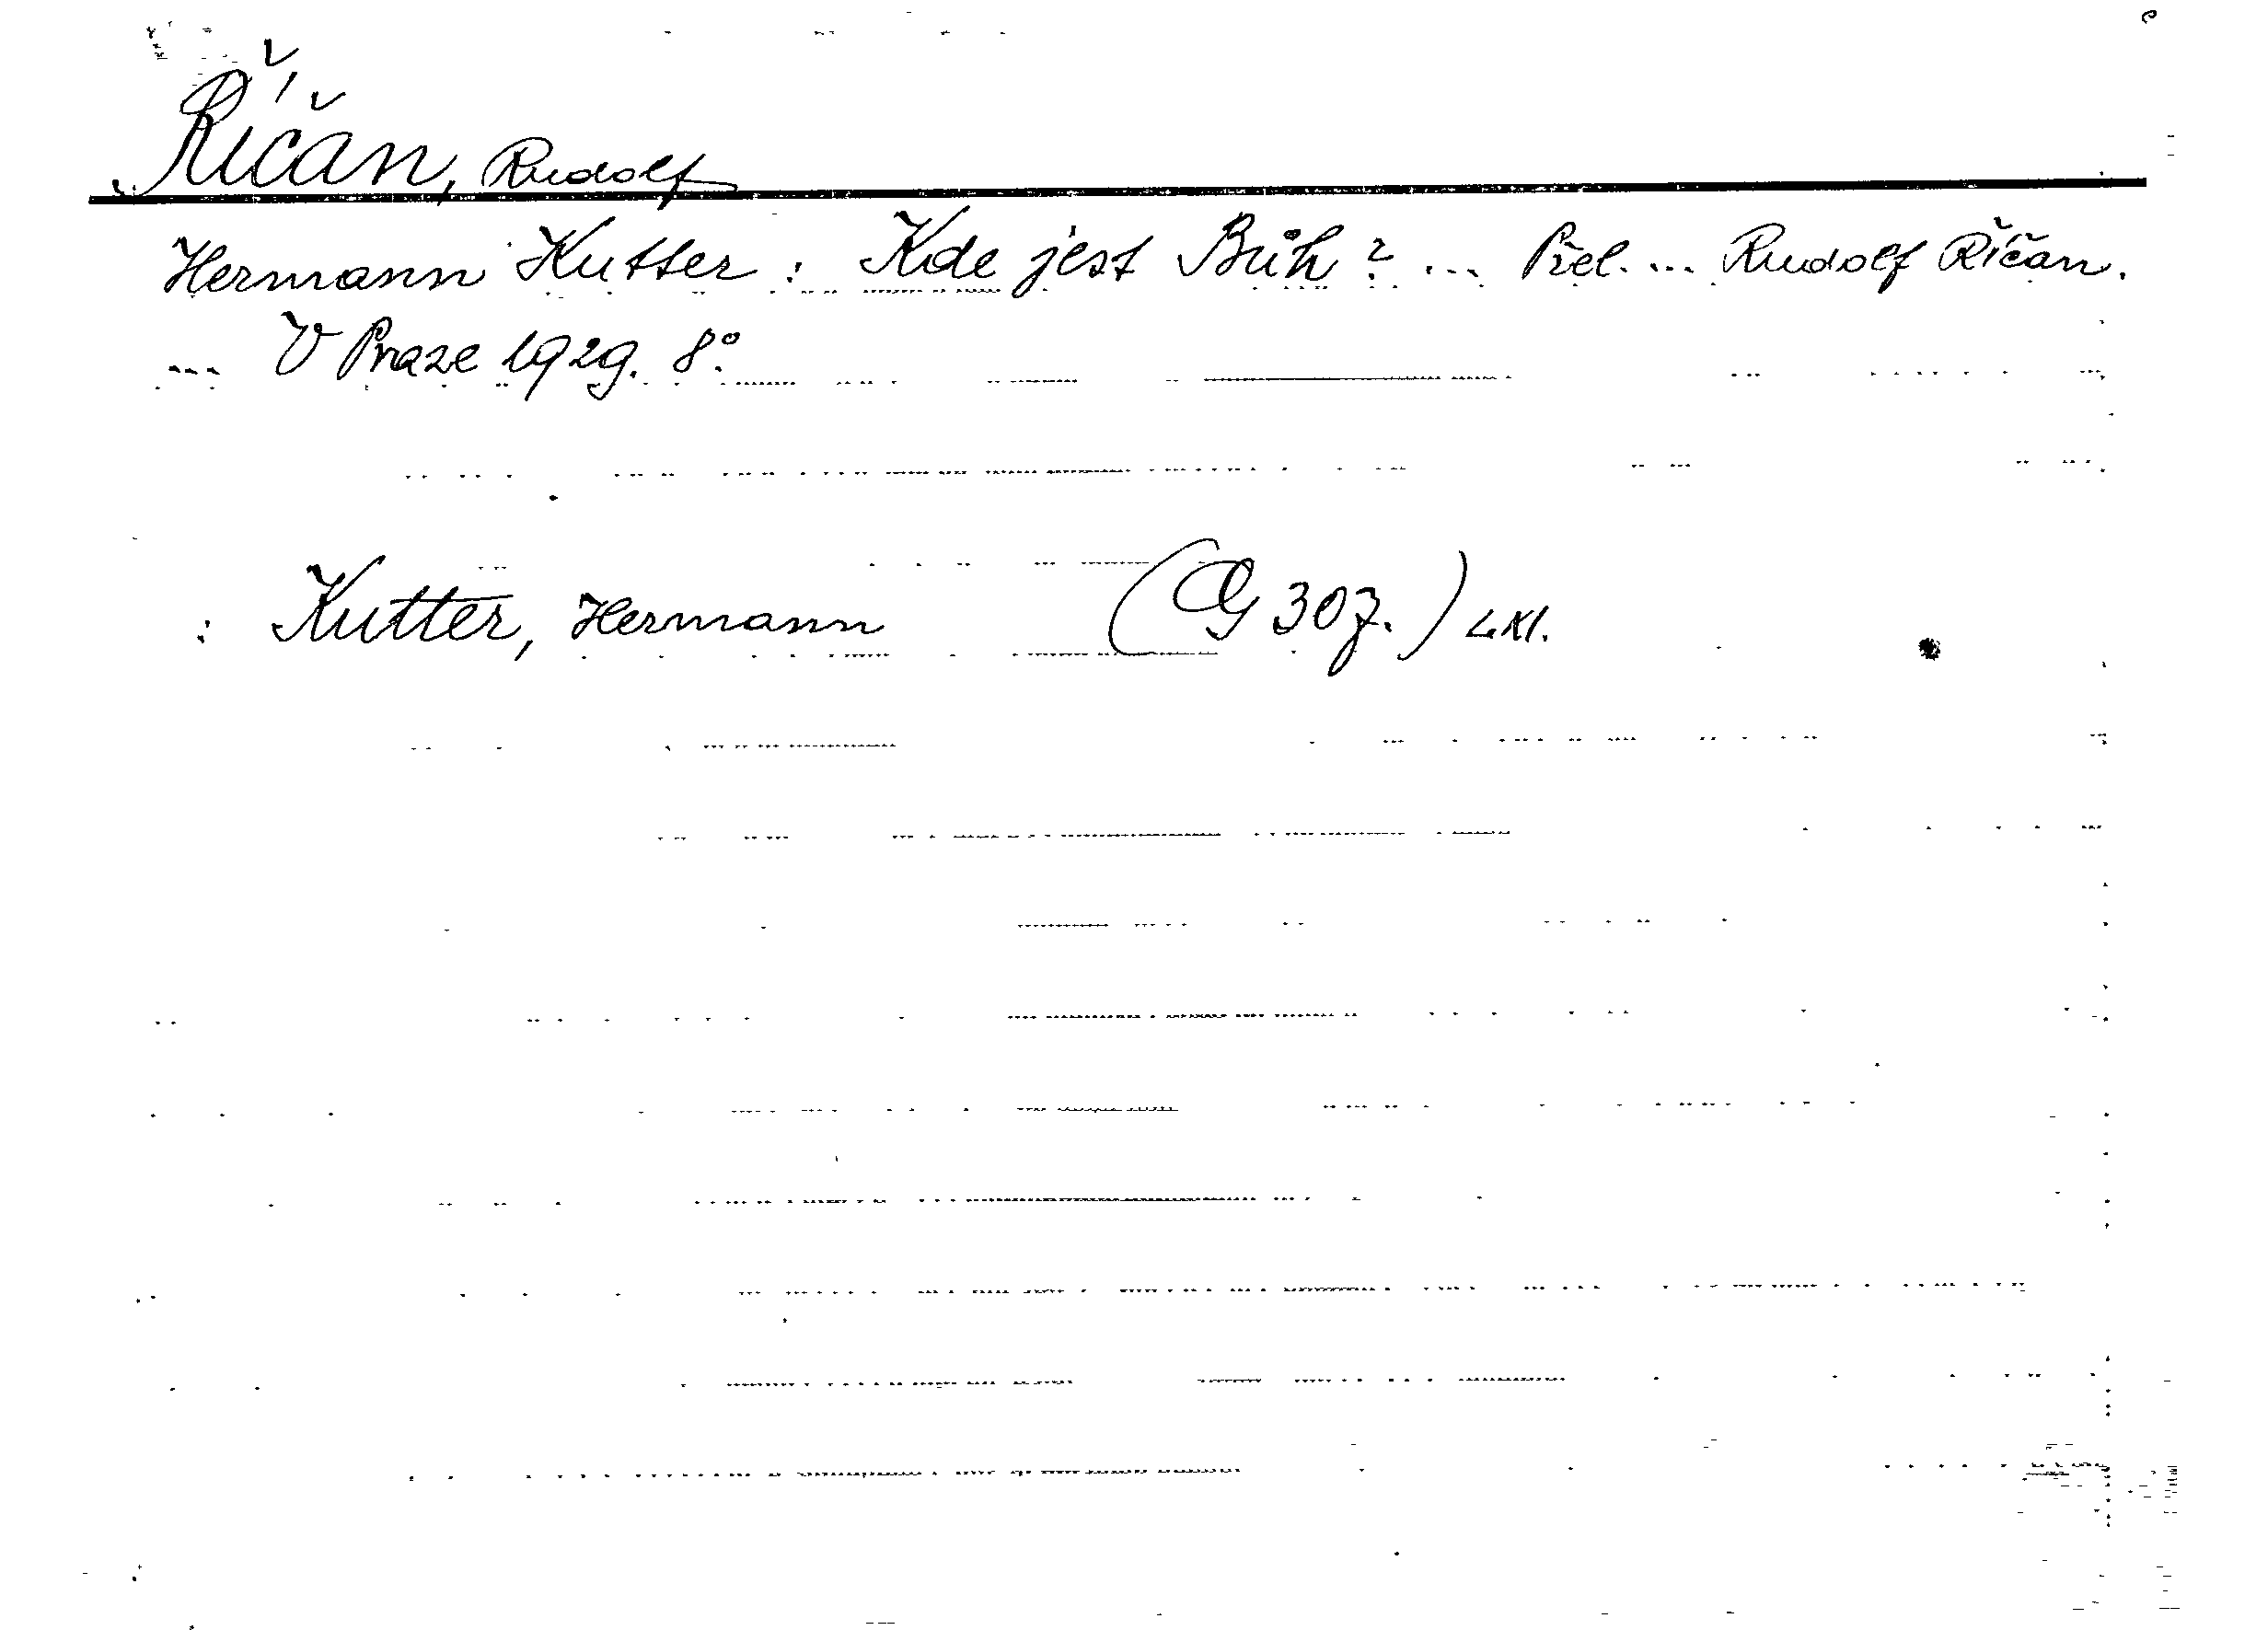 Říčan, Rudolf
Hermann Kutter: Kde jest Bůh? ... Přel. ... Rudolf Říčan.
... V Praze 1929. 8°.
: Kutter, Hermann (G 307.)